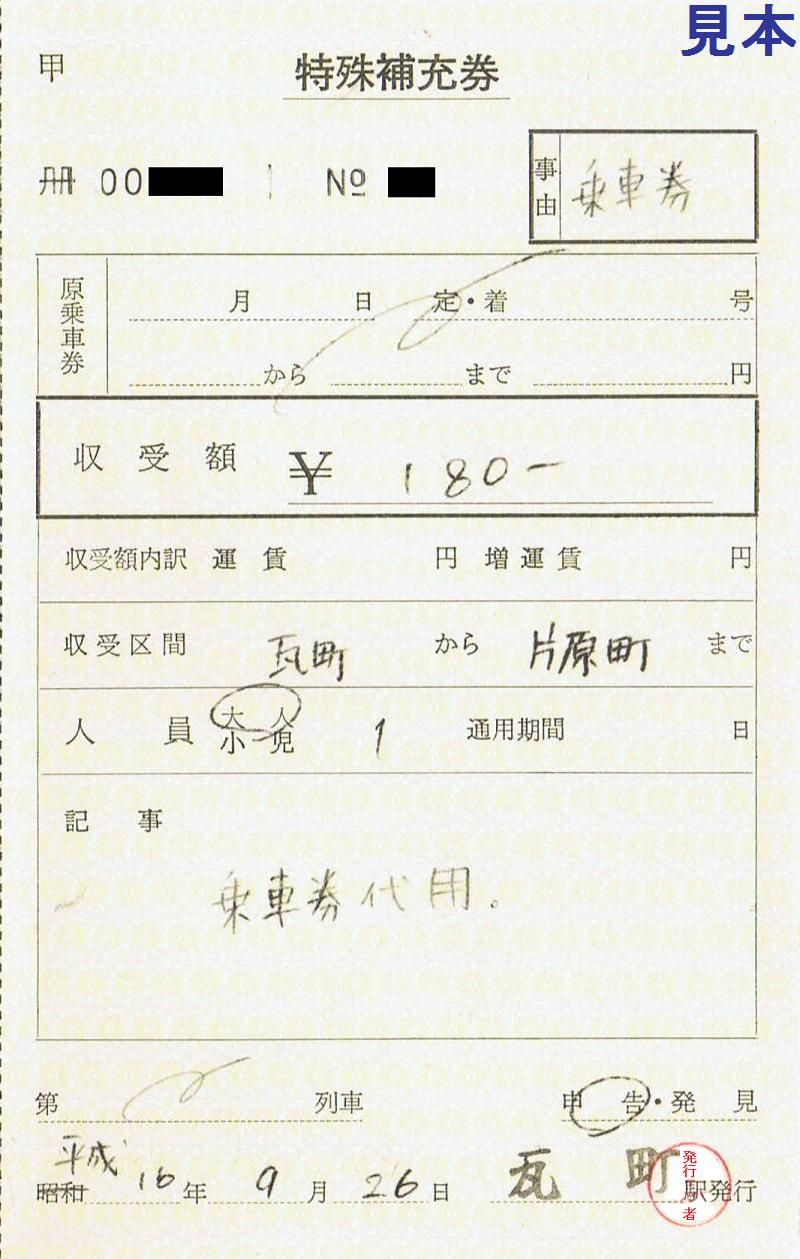 見本
甲 特殊補充券
冊 00 № 事由 乗車券
原乗車券 月 日 定・着 号
から まで 円
収受額 ¥ 180-
収受額内訳 運賃 円 増運賃 円
収受区間 瓦町 から 片原町 まで
人員 大人 小児 1 通用期間 日
記事
乗車券代用。
第 列車 申告・発見
平成
昭和 16年 9月 26日 瓦町 駅発行
発行 者